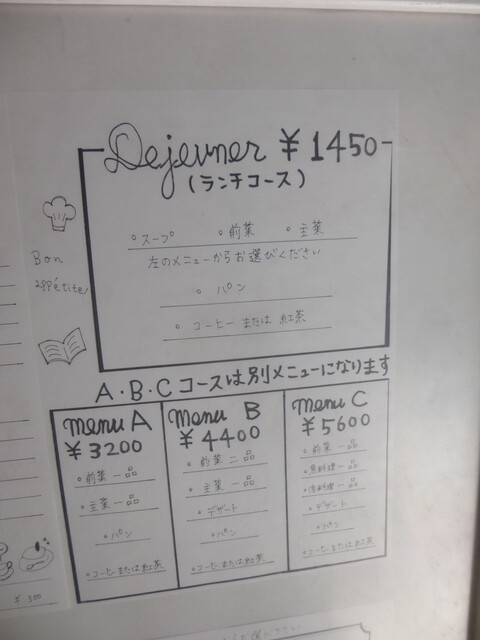 Dejeuner ¥1450
(ランチコース)
Bon
appétite!
。スープ 。前菜 。主菜
左のメニューからお選びください
。パン
。コーヒー または 紅茶
A・B・Cコースは別メニューになります
menu A
¥3200
。前菜一品
。主菜一品
。パン
。コーヒーまたは紅茶
menu B
¥4400
。前菜二品
。主菜一品
。デザート
。パン
。コーヒーまたは紅茶
menu C
¥5600
。前菜一品
。魚料理一品
。肉料理一品
。デザート
。パン
。コーヒーまたは紅茶
¥300